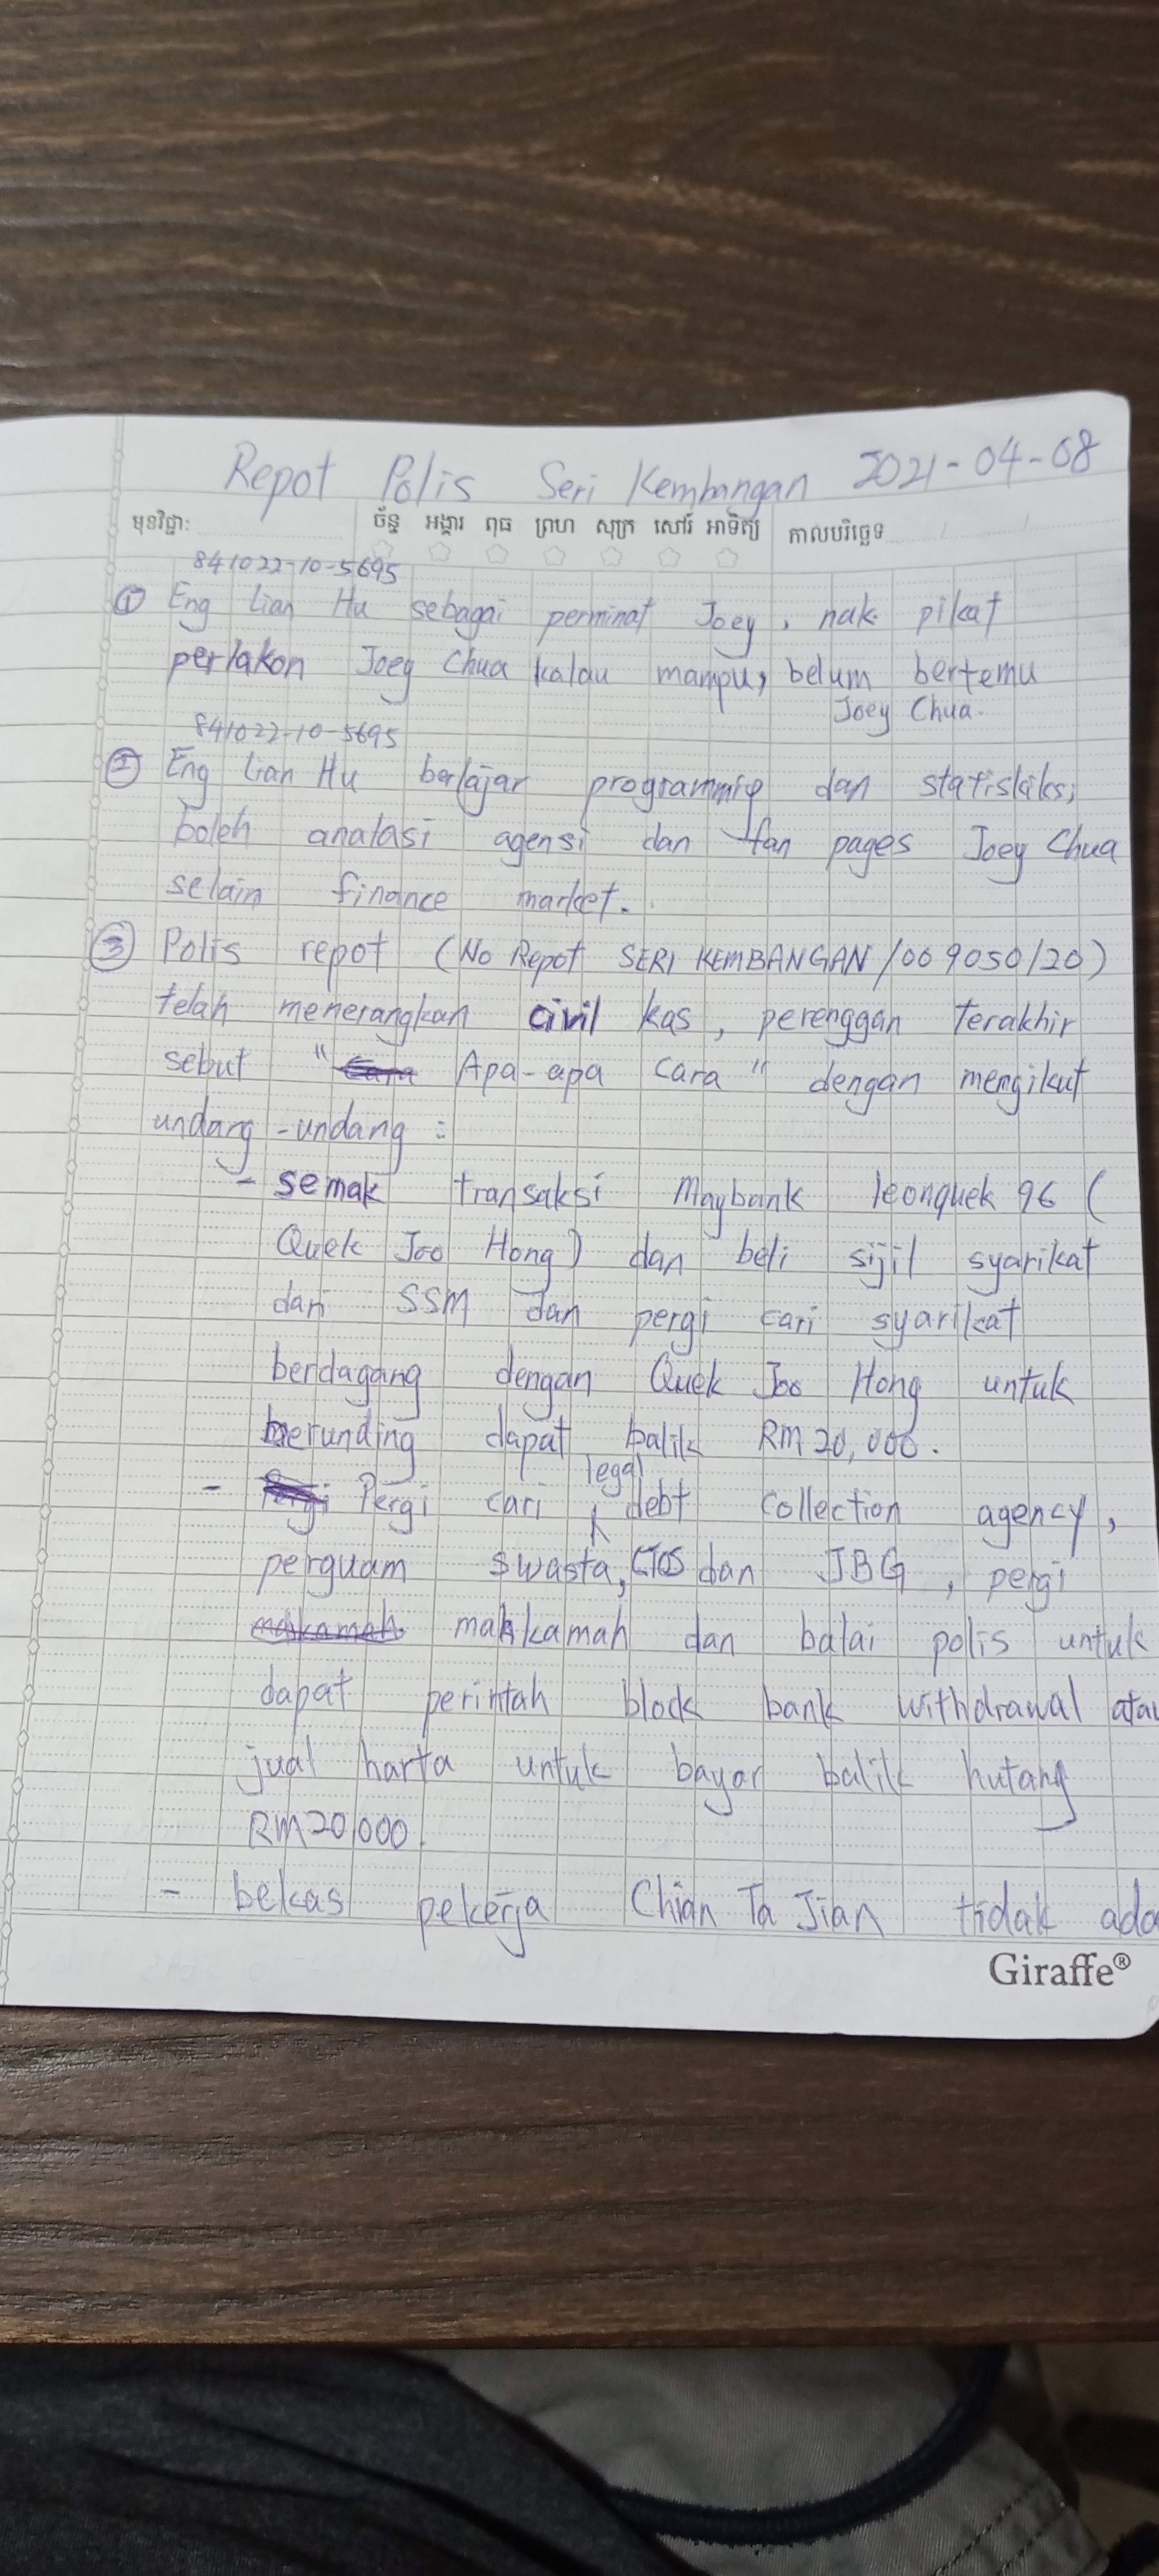 Repot Polis Seri Kembangan 2021-04-08
មុខវិជ្ជា: ច័ន្ទ អង្គារ ពុធ ព្រហ សុក្រ សៅរ៍ អាទិត្យ កាលបរិច្ឆេទ
841022-10-5695
① Eng Lian Hu sebagai perminat Joey, nak pikat
perlakon Joey Chua kalau mampu, belum bertemu
Joey Chua.
841022-10-5695
② Eng Lian Hu berlajar programmig dan statisktiks,
boleh analasi agensi dan fan pages Joey Chua
selain finance market.
③ Polis repot (No Repot SERI KEMBANGAN/009050/20)
telah menerangkan civil kas, perenggan terakhir
sebut " Apa-apa cara " dengan mengikut
undang-undang :
- semak transaksi Maybank leonquek96 (
Quek Joo Hong) dan beli sijil syarikat
dari SSM dan pergi cari syarikat
berdagang dengan Quek Joo Hong untuk
berunding dapat balik RM20,000.
legal
- Pergi cari debt collection agency,
perguam swasta, CTOS dan JBG, pergi
mahkamah dan balai polis untuk
dapat perintah block bank withdrawal atau
jual harta untuk bayar balik hutang
RM20,000.
- bekas pekerja Chian Ta Jian tidak ada
Giraffe®